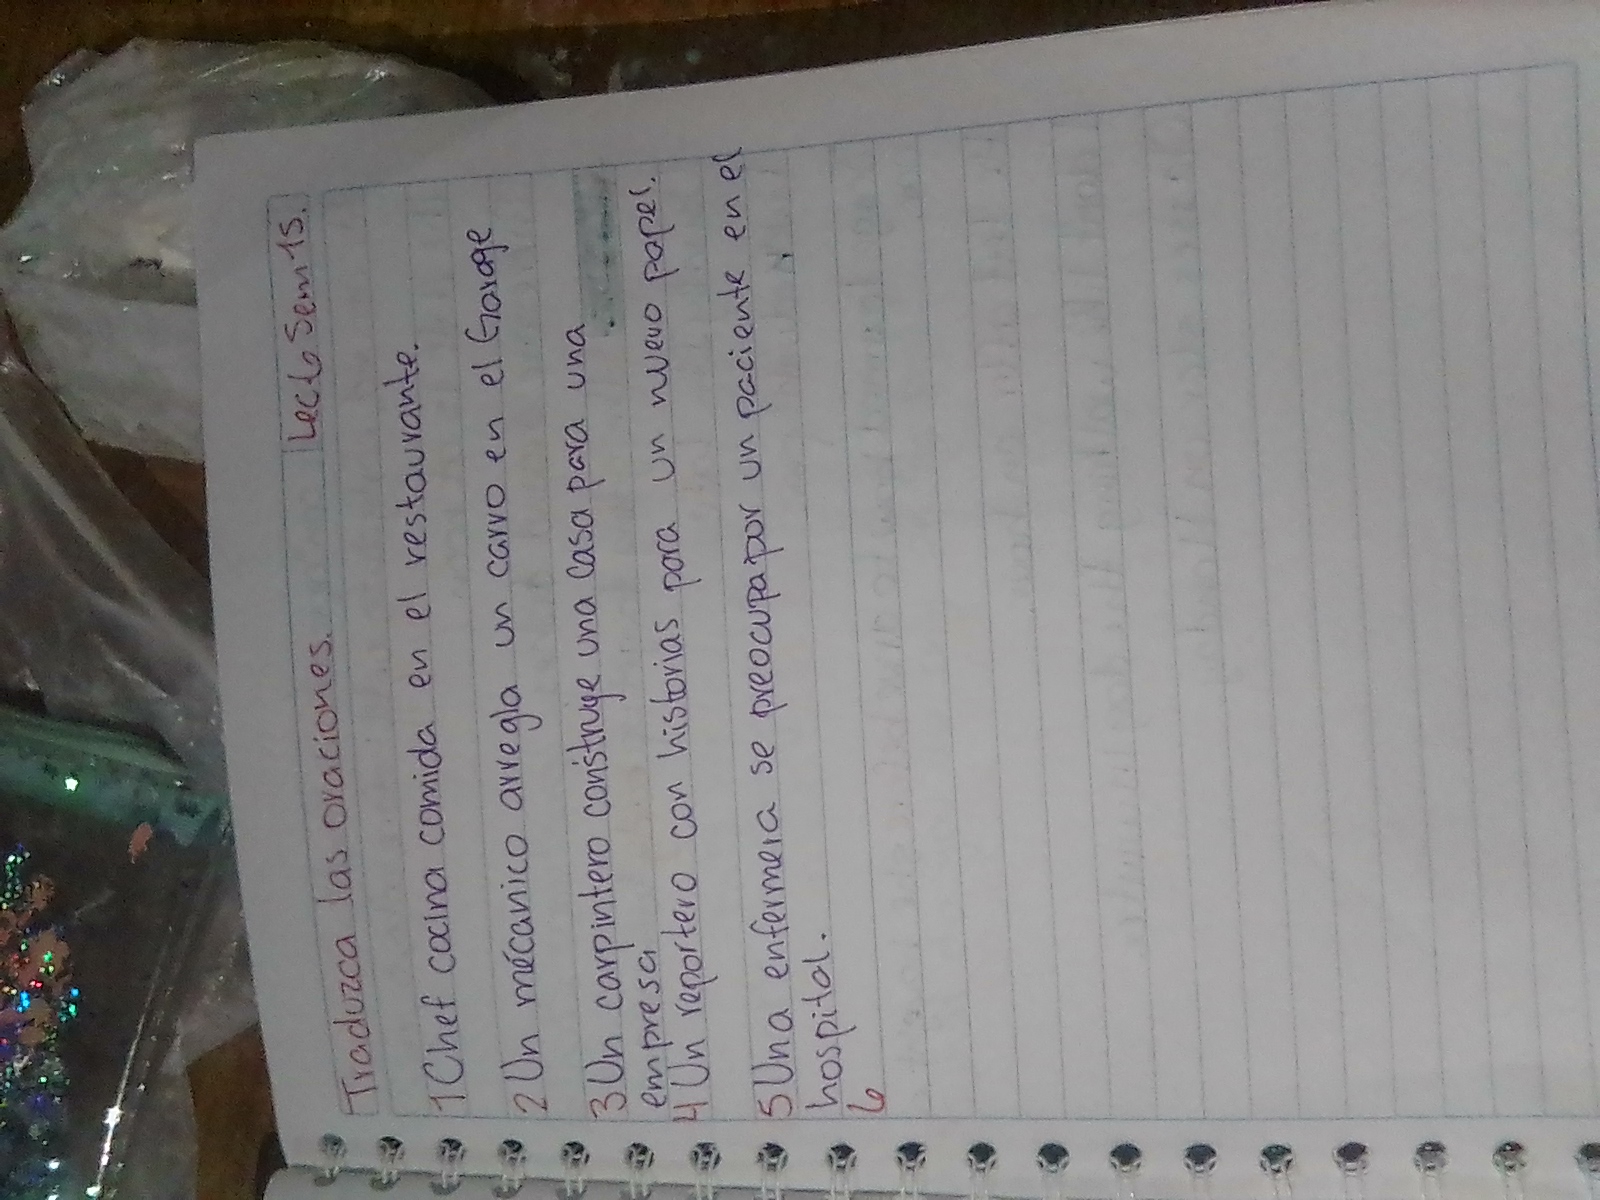 Lecto Sem 15.
Traduzca las oraciones.
1 Chef cocina comida en el restaurante.
2 Un mécanico arregla un carro en el Garage
3 Un carpintero construye una casa para una
empresa
4 Un reportero con historias para un nuevo papel.
5 Una enfermera se preocupa por un paciente en el
hospital.
6